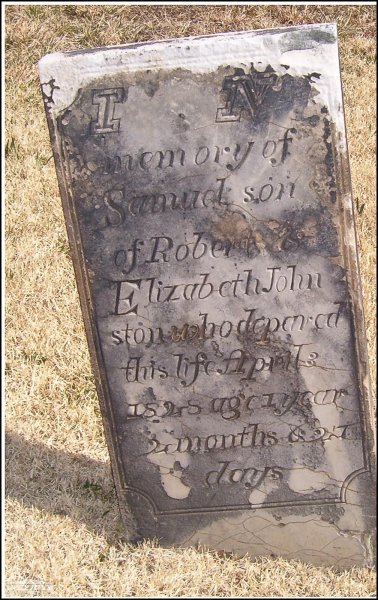 IN
memory of
Samuel son
of Robert &
Elizabeth John
ston who depar ed
this life April 3
1828 age 1 year
2 months & 21
days